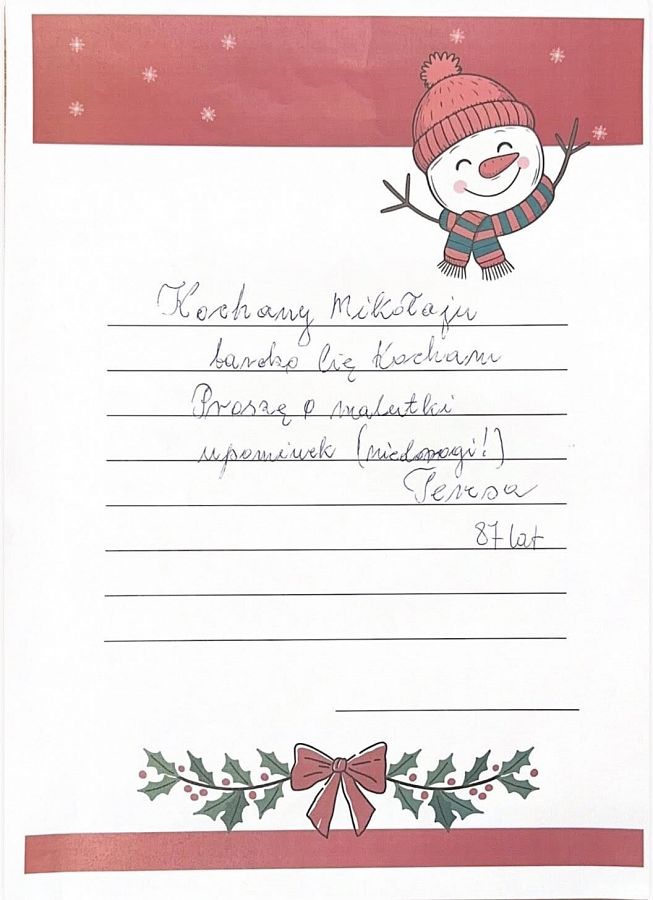 Kochany Mikołaju
bardzo Cię Kocham
Proszę o malutki
upominek (niedrogi!)
Teresa
87 lat